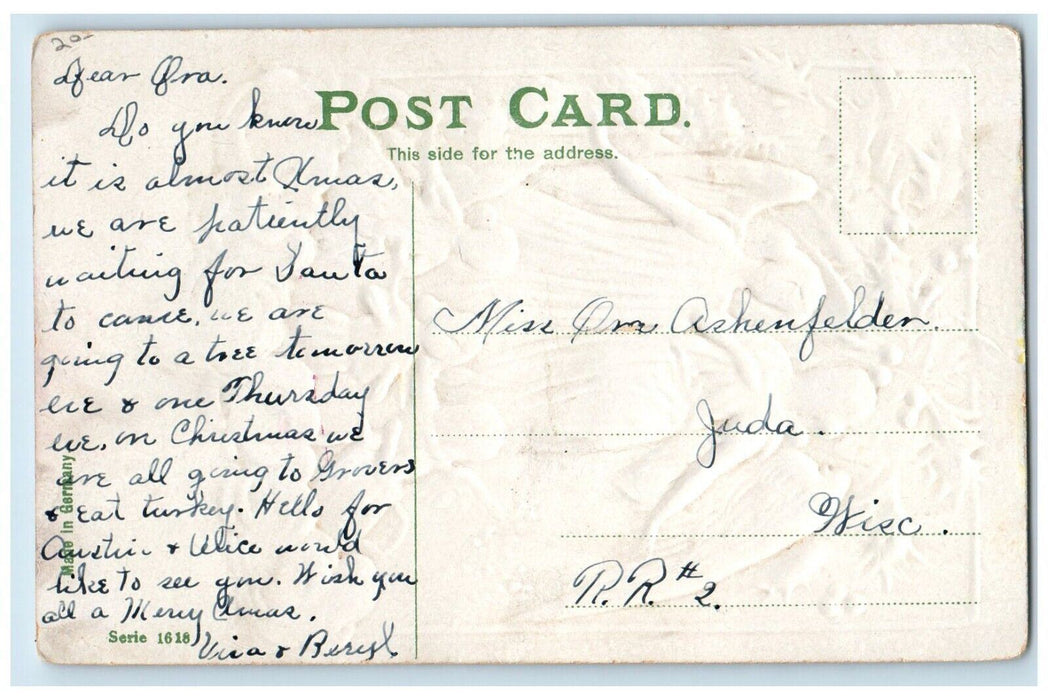 20-
Dear Ora.
Do you know
it is almost Xmas,
we are patiently
waiting for Santa
to come, we are
going to a tree tomorrow
eve & one Thursday
eve, on Christmas we
are all going to Grovers
& eat turkey. Hello for
Austin & Alice would
like to see you. Wish you
all a Merry Xmas.
& Beryl
Made in Germany
Serie 1618
POST CARD.
This side for the address.
Miss Ora Ashenfelder.
Juda.
Wisc.
R.R. #2.